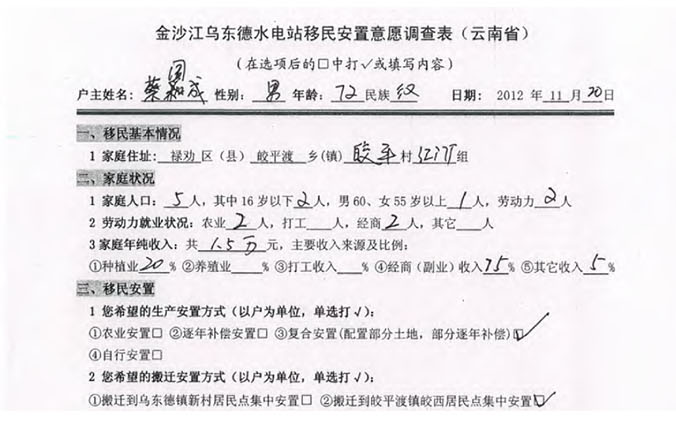 金沙江乌东德水电站移民安置意愿调查表（云南省）
（在选项后的□中打√或填写内容）
户主姓名：蔡 成 性别：男 年龄：72 民族 汉 日期：2012 年 11 月 20 日
一、移民基本情况
1 家庭住址：禄劝 区（县） 皎平渡 乡(镇) 皎平 村 江边 组
二、家庭状况
1 家庭人口：5 人，其中 16 岁以下 2 人，男 60、女 55 岁以上 1 人，劳动力 2 人
2 劳动力就业状况：农业 2 人，打工 人，经商 2 人，其它 人
3 家庭年纯收入：共 1.5万 元，主要收入来源及比例：
①种植业 20 % ②养殖业 % ③打工收入 % ④经商（副业）收入 75 % ⑤其它收入 5 %
三、移民安置
1 您希望的生产安置方式（以户为单位，单选打√）：
①农业安置□ ②逐年补偿安置□ ③复合安置(配置部分土地，部分逐年补偿)☑
④自行安置□
2 您希望的搬迁安置方式（以户为单位，单选打√）：
①搬迁到乌东德镇新村居民点集中安置□ ②搬迁到皎平渡镇皎西居民点集中安置☑